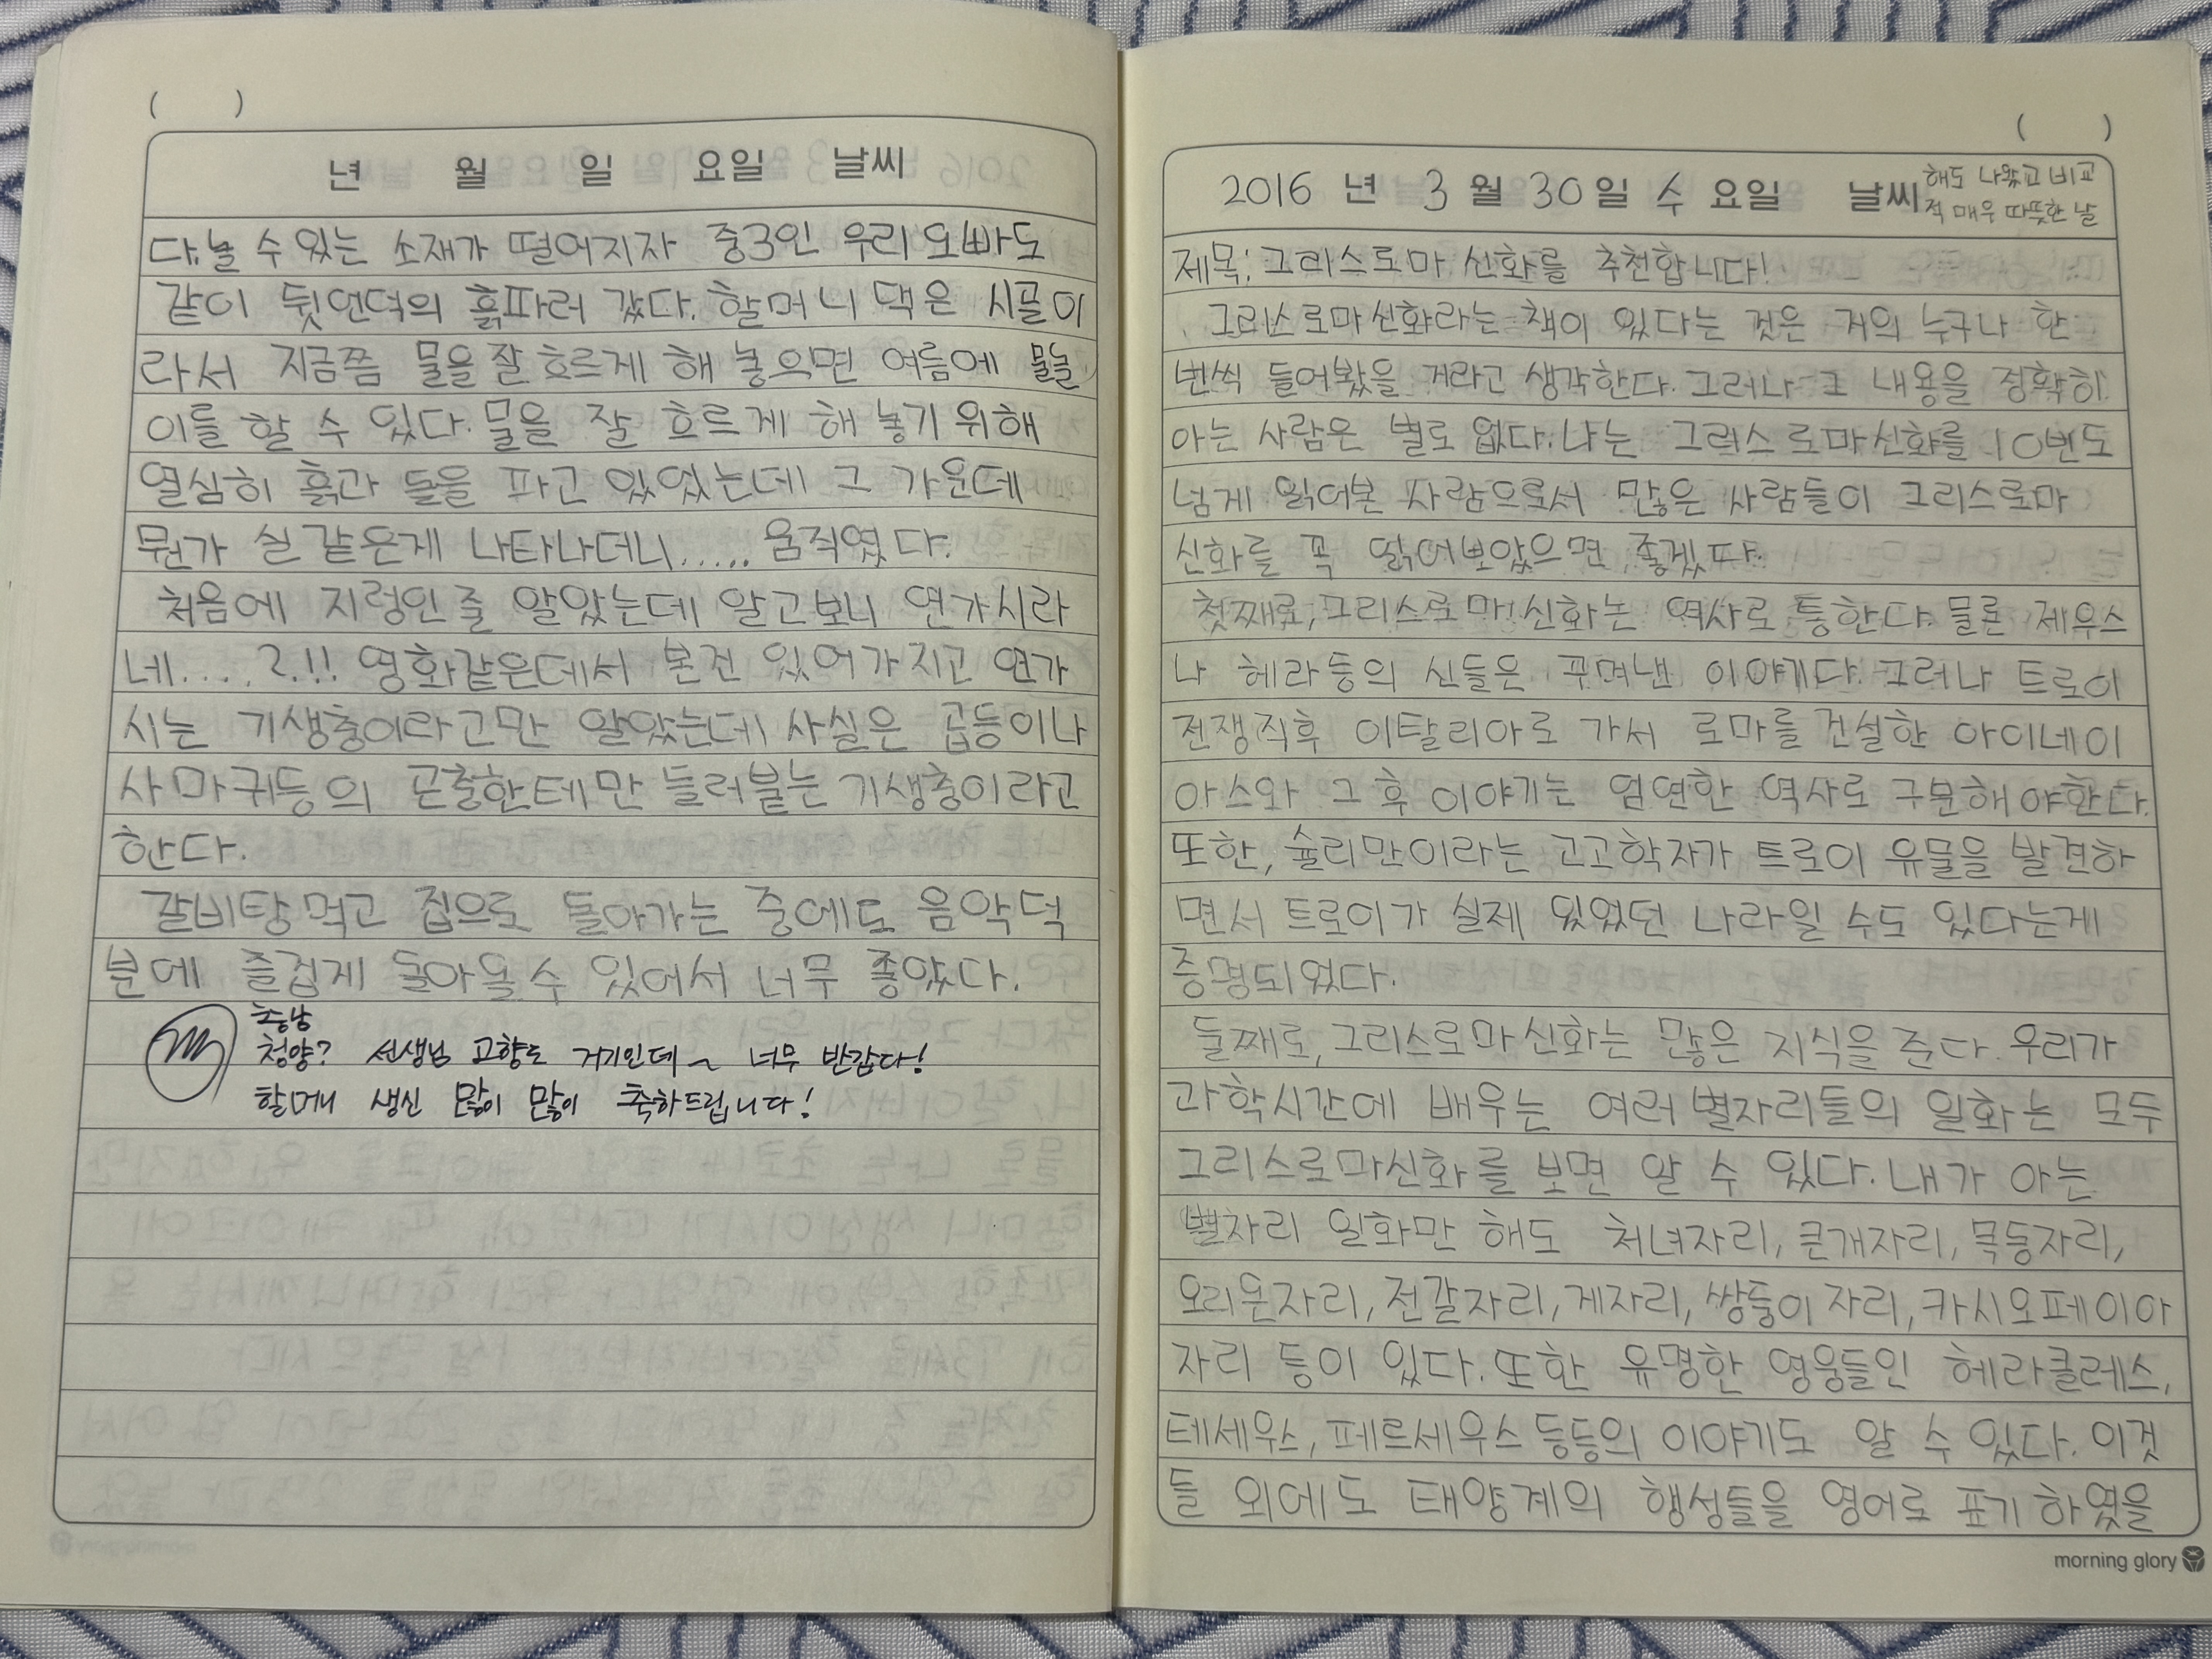 ( )
년 월 일 요일 날씨
다. 놀 수 있는 소재가 떨어지자 중3인 우리 오빠도
같이 뒷언덕의 흙파러 갔다. 할머니 댁은 시골이
라서 지금쯤 물을 잘 흐르게 해 놓으면 여름에 물놀
이를 할 수 있다. 물을 잘 흐르게 해 놓기 위해
열심히 흙과 돌을 파고 있었는데 그 가운데
뭔가 실 같은게 나타나더니..... 움직였다.
처음에 지렁인줄 알았는데 알고보니 연가시라
네....?!! 영화같은데서 본건 있어가지고 연가
시는 기생충이라고만 알았는데 사실은 곱등이나
사마귀등의 곤출한테만 들러붙는 기생충이라고
한다.
갈비탕먹고 집으로 돌아가는 중에도 음악덕
분에 즐겁게 돌아올 수 있어서 너무 좋았다.
충남
청양? 선생님 고향도 거기인데~ 너무 반갑다!
할머니 생신 많이 많이 축하드립니다!
( )
2016 년 3 월 30 일 수 요일 날씨 해도 나왔고 비교
적 매우 따뜻한 날
제목: 그리스로마 신화를 추천합니다!
그리스로마신화라는 책이 있다는 것은 거의 누구나 한
번씩 들어봤을 거라고 생각한다. 그러나 그 내용을 정확히
아는 사람은 별로 없다. 나는 그리스로마신화를 10번도
넘게 읽어본 사람으로서 많은 사람들이 그리스로마
신화를 꼭 읽어보았으면 좋겠다.
첫째로, 그리스로마 신화는 역사로 통한다. 물론 제우스
나 헤라등의 신들은 꾸며낸 이야기다. 그러나 트로이
전쟁직후 이탈리아로 가서 로마를 건설한 아이네이
아스와 그 후 이야기는 엄연한 역사로 구분해야한다.
또한, 슐리만이라는 고고학자가 트로이 유물을 발견하
면서 트로이가 실제 있었던 나라일 수도 있다는게
증명되었다.
둘째로, 그리스로마신화는 많은 지식을 준다. 우리가
과학시간에 배우는 여러 별자리들의 일화는 모두
그리스로마신화를 보면 알 수 있다. 내가 아는
별자리 일화만 해도 처녀자리, 큰개자리, 목동자리,
오리온자리, 전갈자리, 게자리, 쌍둥이 자리, 카시오페이아
자리 등이 있다. 또한 유명한 영웅들인 헤라클레스,
테세우스, 페르세우스 등등의 이야기도 알 수 있다. 이것
들 외에도 태양계의 행성들을 영어로 표기하였을
morning glory